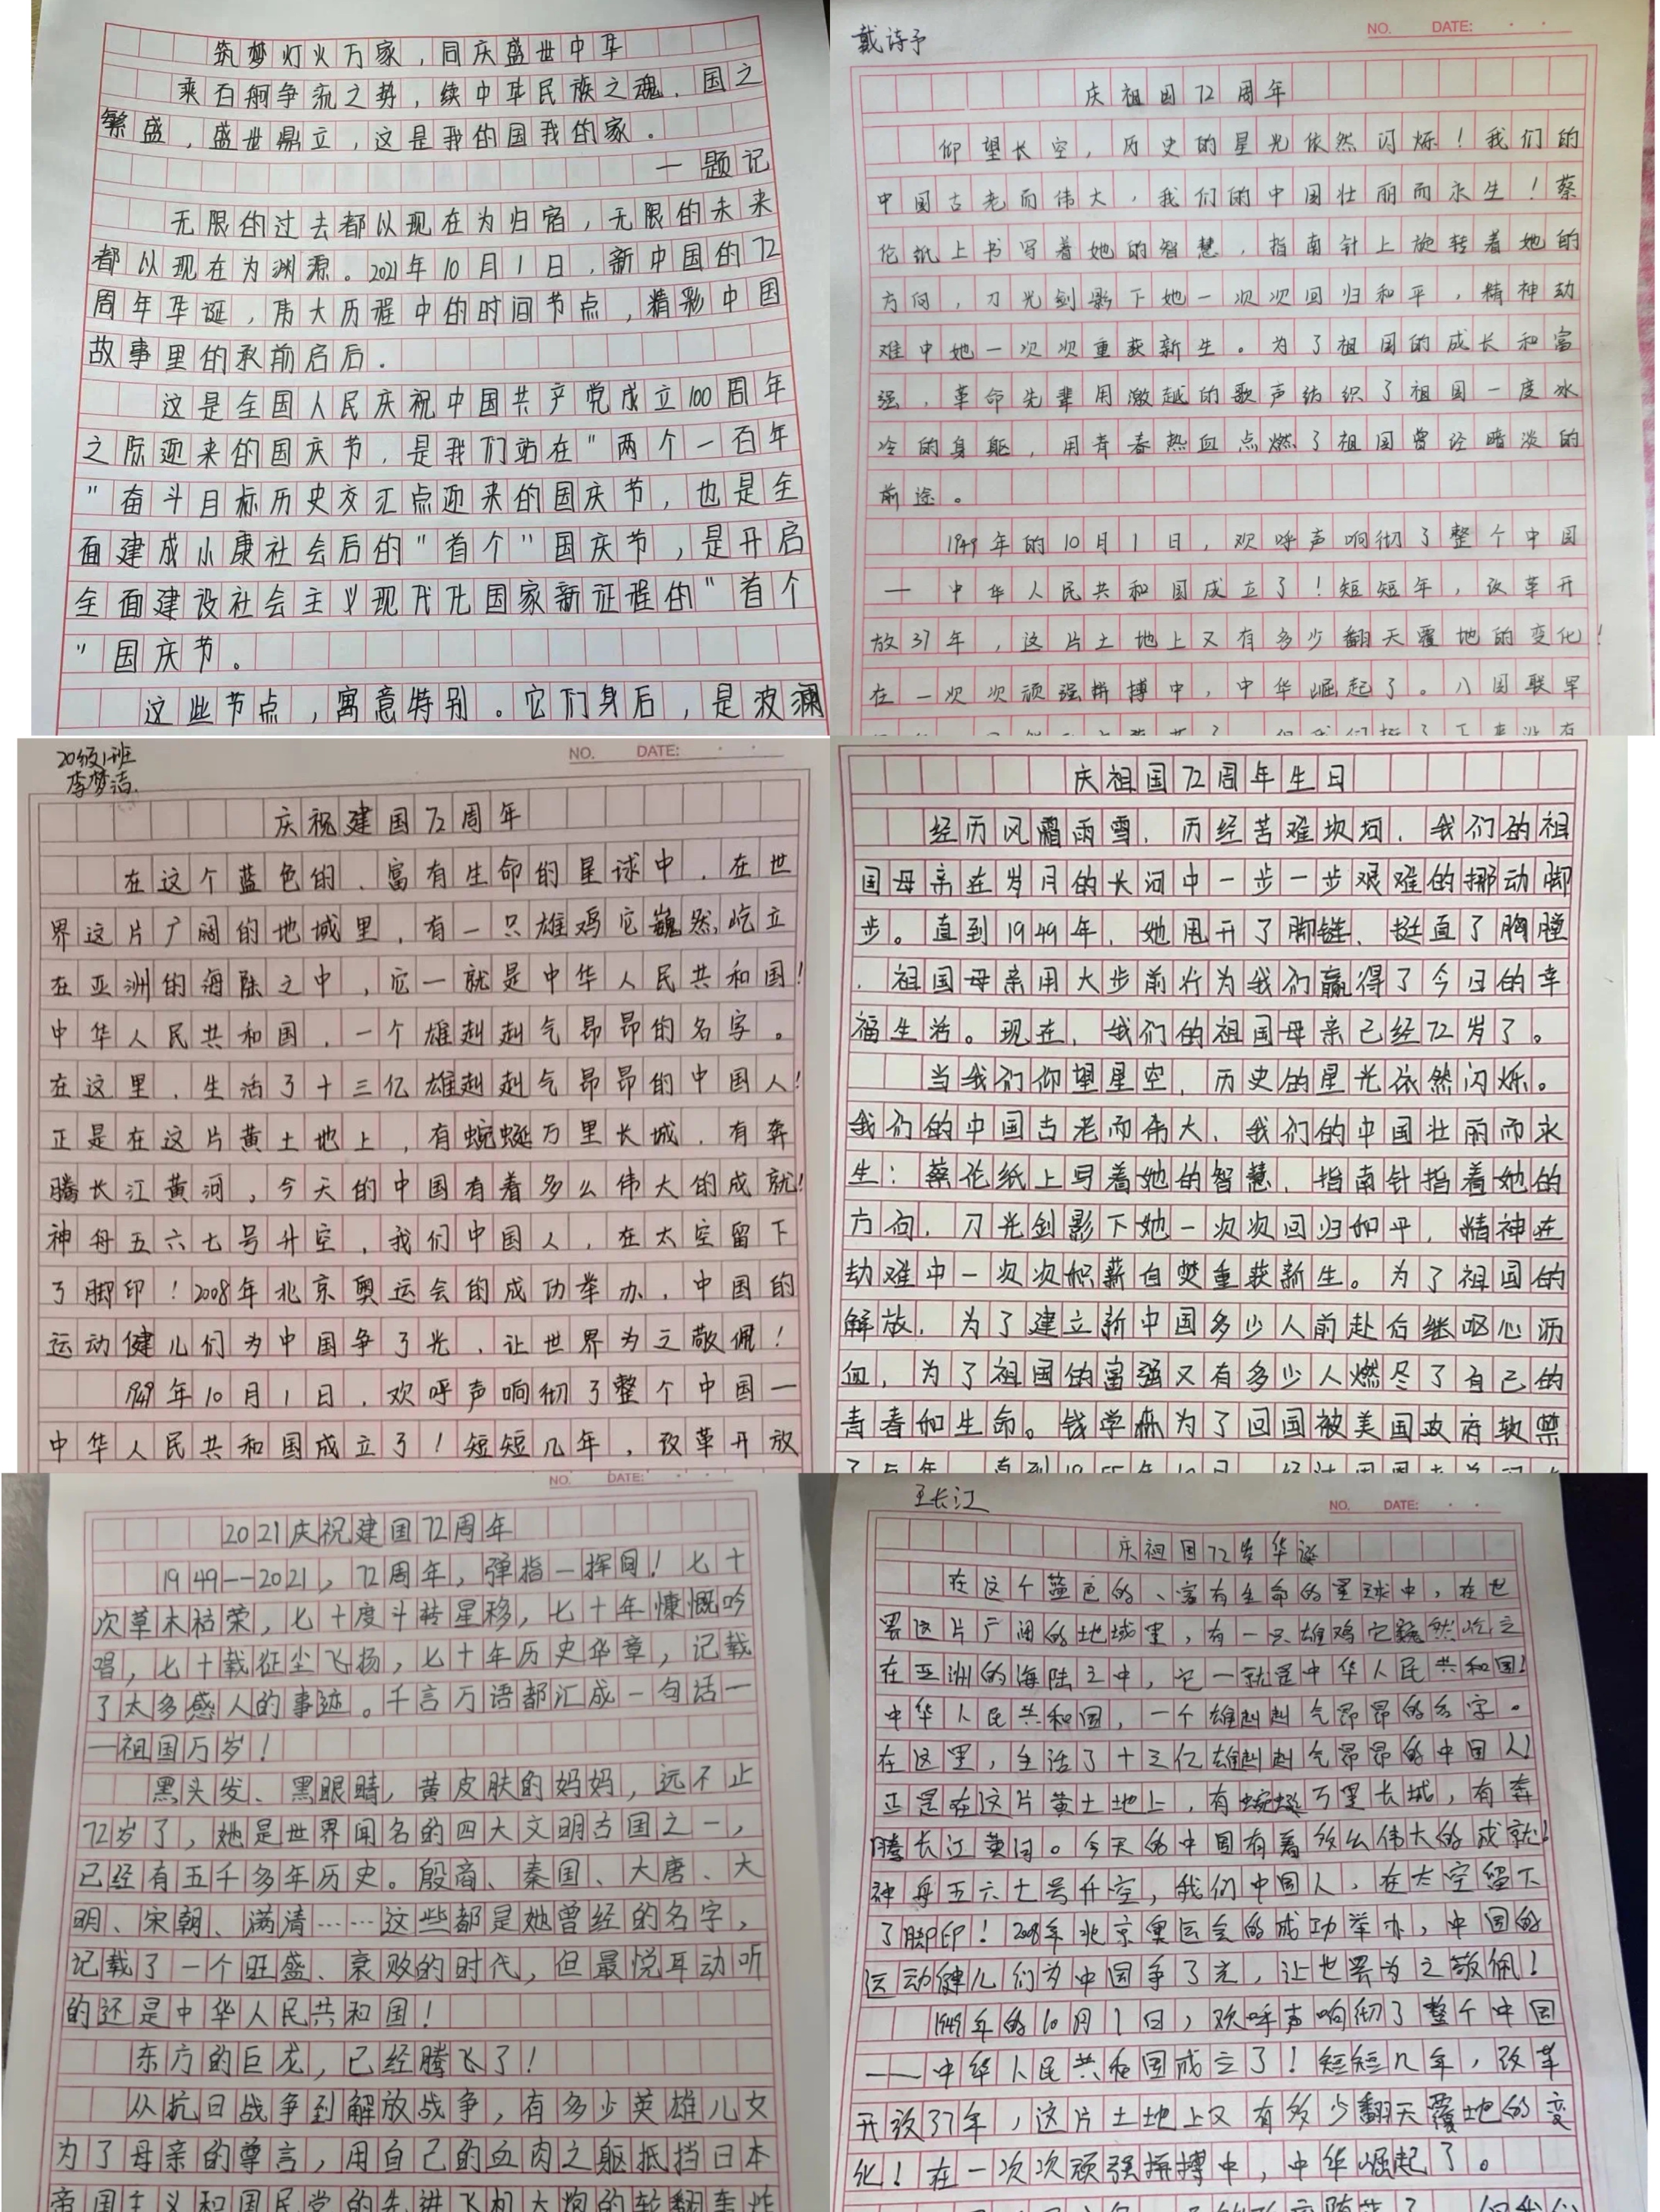 筑梦灯火万家，同庆盛世中华
乘百舸争流之势，续中华民族之魂．国之
繁盛，盛世鼎立，这是我的国我的家．
一题记
无限的过去都以现在为归宿，无限的未来
都以现在为渊源。2021年10月1日，新中国的72
周年华诞，伟大历程中的时间节点，精彩中国
故事里的承前启后．
这是全国人民庆祝中国共产党成立100周年
之际迎来的国庆节．是我们站在"两个一百年
"奋斗目标历史交汇点迎来的国庆节，也是全
面建成小康社会后的"首个"国庆节，是开启
全面建设社会主义现代化国家新征程的"首个
"国庆节。
这些节点，寓意特别。它们身后，是波澜
戴诗予
NO. DATE: · ·
庆祖国72周年
仰望长空，历史的星光依然闪烁！我们的
中国古老而伟大，我们的中国壮丽而永生！蔡
伦纸上书写着她的智慧，指南针上旋转着她的
方向，刀光剑影下她一次次回归和平，精神劫
难中她一次次重获新生。为了祖国的成长和富
强，革命先辈用激越的歌声纺织了祖国一度冰
冷的身躯，用青春热血点燃了祖国曾经暗淡的
前途。
1949年的10月1日，欢呼声响彻了整个中国
一中华人民共和国成立了！短短年，改革开
放37年，这片土地上又有多少翻天覆地的变化！
在一次次顽强拼搏中，中华崛起了。八国联军
20级1班
李梦洁
NO. DATE: · ·
庆祝建国72周年
在这个蓝色的、富有生命的星球中．在世
界这片广阔的地域里，有一只雄鸡它巍然屹立
在亚洲的海陆之中，它一就是中华人民共和国！
中华人民共和国，一个雄赳赳气昂昂的名字。
在这里．生活了十三亿雄赳赳气昂昂的中国人！
正是在这片黄土地上，有蜿蜒万里长城．有奔
腾长江黄河，今天的中国有着多么伟大的成就！
神舟五六七号升空，我们中国人，在太空留下
了脚印！2008年北京奥运会的成功举办，中国的
运动健儿们为中国争了光，让世界为之敬佩！
1949年10月1日，欢呼声响彻了整个中国一
中华人民共和国成立了！短短几年，改革开放
庆祖国72周年生日
经历风霜雨雪，历经苦难坎坷，我们的祖
国母亲在岁月的长河中一步一步艰难的挪动脚
步。直到1949年，她甩开了脚链，挺直了胸膛
，祖国母亲用大步前行为我们赢得了今日的幸
福生活。现在，我们的祖国母亲已经72岁了。
当我们仰望星空，历史的星光依然闪烁。
我们的中国古老而伟大，我们的中国壮丽而永
生：蔡伦纸上写着她的智慧，指南针指着她的
方向，刀光剑影下她一次次回归和平，精神在
劫难中一次次积薪自焚重获新生。为了祖国的
解放，为了建立新中国多少人前赴后继呕心沥
血，为了祖国的富强又有多少人燃尽了自己的
青春和生命。钱学森为了回国被美国政府软禁
NO. DATE: · ·
2021庆祝建国72周年
1949--2021，72周年，弹指一挥间！七十
次草木枯荣，七十度斗转星移，七十年慷慨吟
唱，七十载征尘飞扬，七十年历史华章，记载
了太多感人的事迹。千言万语都汇成一句话一
一祖国万岁！
黑头发、黑眼睛，黄皮肤的妈妈，远不止
72岁了，她是世界闻名的四大文明古国之一，
已经有五千多年历史。殷商、秦国、大唐、大
明、宋朝、满清……这些都是她曾经的名字，
记载了一个旺盛、衰败的时代，但最悦耳动听
的还是中华人民共和国！
东方的巨龙，已经腾飞了！
从抗日战争到解放战争，有多少英雄儿女
为了母亲的尊言，用自己的血肉之躯抵挡日本
帝国主义和国民党的先进飞机大炮的轮翻轰炸
王长江
NO. DATE: · ·
庆祖国72岁华诞
在这个蓝色的、富有生命的星球中，在世
界这片广阔的地域里，有一只雄鸡它巍然屹立
在亚洲的海陆之中，它一就是中华人民共和国！
中华人民共和国，一个雄赳赳气昂昂的名字。
在这里，生活了十三亿雄赳赳气昂昂的中国人！
正是在这片黄土地上，有蜿蜒万里长城，有奔
腾长江黄河。今天的中国有着多么伟大的成就！
神舟五六七号升空，我们中国人，在太空留下
了脚印！2008年北京奥运会的成功举办，中国的
运动健儿们为中国争了光，让世界为之敬佩！
1949年的10月1日，欢呼声响彻了整个中国
——中华人民共和国成立了！短短几年，改革
开放37年，这片土地上又有多少翻天覆地的变
化！在一次次顽强拼搏中，中华崛起了。